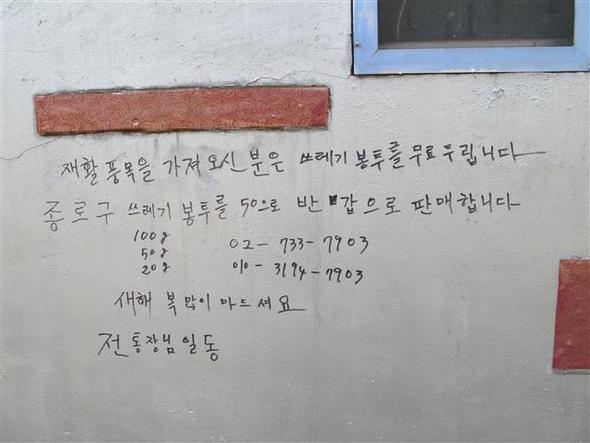 재활 품목을 가져 오신 분은 쓰레기 봉투를 무료 두립니다
종로구 쓰레기 봉투를 50으로 반 값으로 판매합니다
100g
50g 02-733-7903
20g 010-3194-7903
새해 복 많이 마드셔요
전 통장님 일동